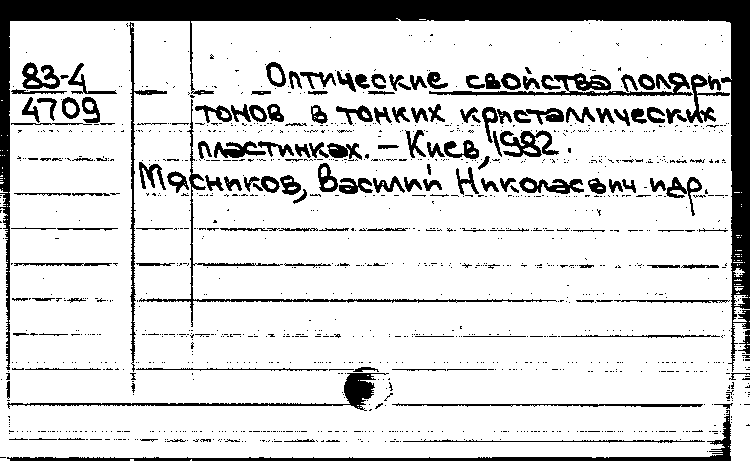 83-4
4709
Оптические свойства поляри-
тонов в тонких кристаллических
пластинках. – Киев, 1982.
Мясников, Василий Николаевич и др.